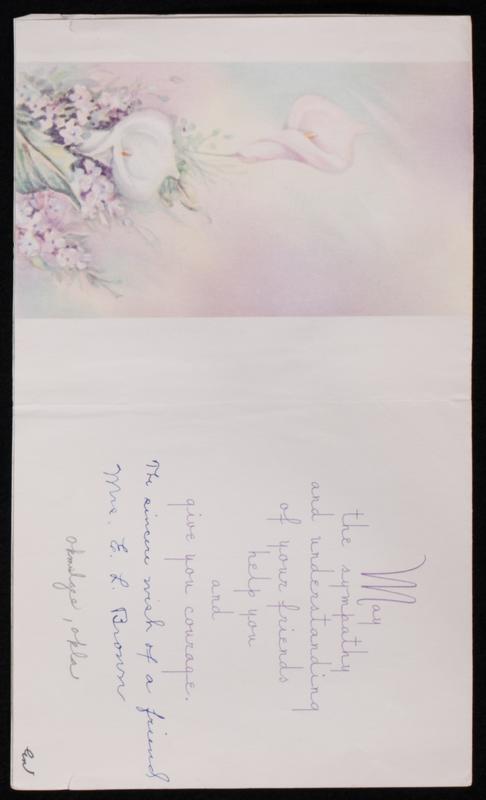 May
the sympathy
and understanding
of your friends
help you
and
give you courage.
The sincere wish of a friend
Mrs. E. L. Brown
Okmulgee, Okla